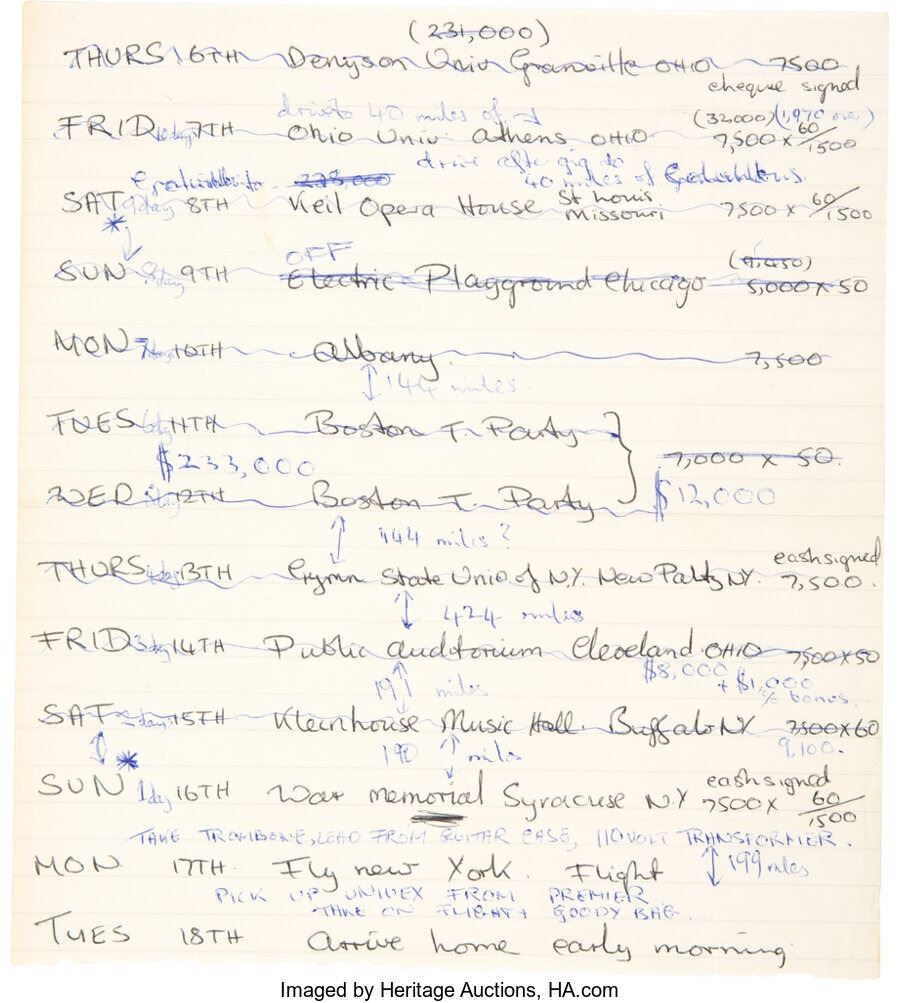 (231,000)
THURS 6TH Denyson Univ Granville OHIO 7500
cheque signed
drive 40 miles of
(32,000) (1,970 over)
FRID 7TH Ohio Univ Athens OHIO 7,500 x 60/1500
drive after gig to
40 miles of
228,000
SAT 9day 8TH Keil Opera House St Louis Missouri 7500 x 60/1500
*
OFF
(4,450)
SUN 8day 9TH Electric Playground Chicago 5,000 x 50
MON 7day 10TH Albany 7,500
144 miles
TUES 6day 11TH Boston T. Party
$233,000
7,000 x 50
WED 12TH Boston T. Party $12,000
144 miles?
cash signed
THURS 4day 13TH Gymn State Univ of N.Y. New Paltz NY. 7,500.
424 miles
FRID 3day 14TH Public auditorium Cleveland OHIO 7500 x 50
$8,000 + $1,000
% bonus.
191 miles
SAT 2day 15TH Kleinhouse Music Hall. Buffalo NY 7500 x 60
9,100.
190 miles
*
cash signed
SUN 1day 16TH War memorial Syracuse N.Y 7500 x 60/1500
TAKE TROMBONE, LEAD FROM GUITAR CASE, 110 VOLT TRANSFORMER.
199 miles
MON 17TH. Fly new York. Flight
PICK UP UNIVEX FROM PREMIER
TAKE ON FLIGHT + GOODY BAG.
TUES 18TH arrive home early morning
Imaged by Heritage Auctions, HA.com